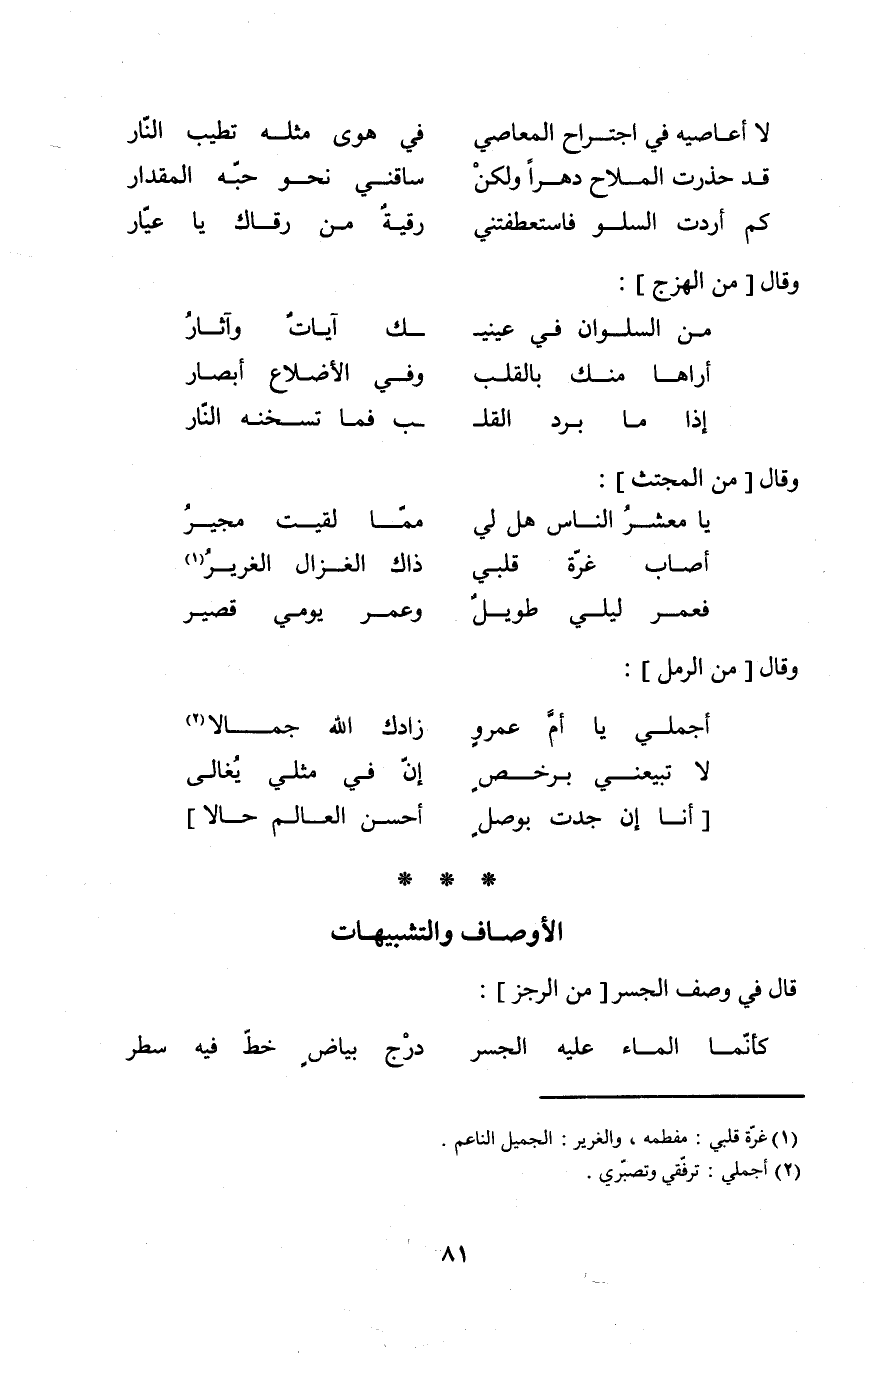 لا أعاصيه في اجتراح المعاصي في هوى مثله تطيب النّار
قد حذرت الملاح دهراً ولكنْ ساقني نحو حبّه المقدار
كم أردت السلو فاستعطفتني رقيةٌ من رقاك يا عيّار
وقال [ من الهزج ] :
من السلوان في عينيـ ـك آياتٌ وآثارُ
أراها منك بالقلب وفي الأضلاع أبصار
إذا ما برد القلـ ـب فما تسخنه النّار
وقال [ من المجتث ] :
يا معشرُ الناس هل لي ممّا لقيت مجيرُ
أصاب غرّة قلبي ذاك الغزال الغريرُ(١)
فعمر ليلي طويلٌ وعمر يومي قصير
وقال [ من الرمل ] :
أجملي يا أمَّ عمروٍ زادك الله جمالا(٢)
لا تبيعني برخصٍ إنّ في مثلي يُغالى
[ أنا إن جدت بوصلٍ أحسن العالم حالا ]
* * *
الأوصاف والتشبيهات
قال في وصف الجسر [ من الرجز ] :
كأنّما الماء عليه الجسر درْج بياضٍ خطّ فيه سطر
(١) غرّة قلبي : مفطمه ، والغرير : الجميل الناعم .
(٢) أجملي : ترفّقي وتصبّري .
٨١